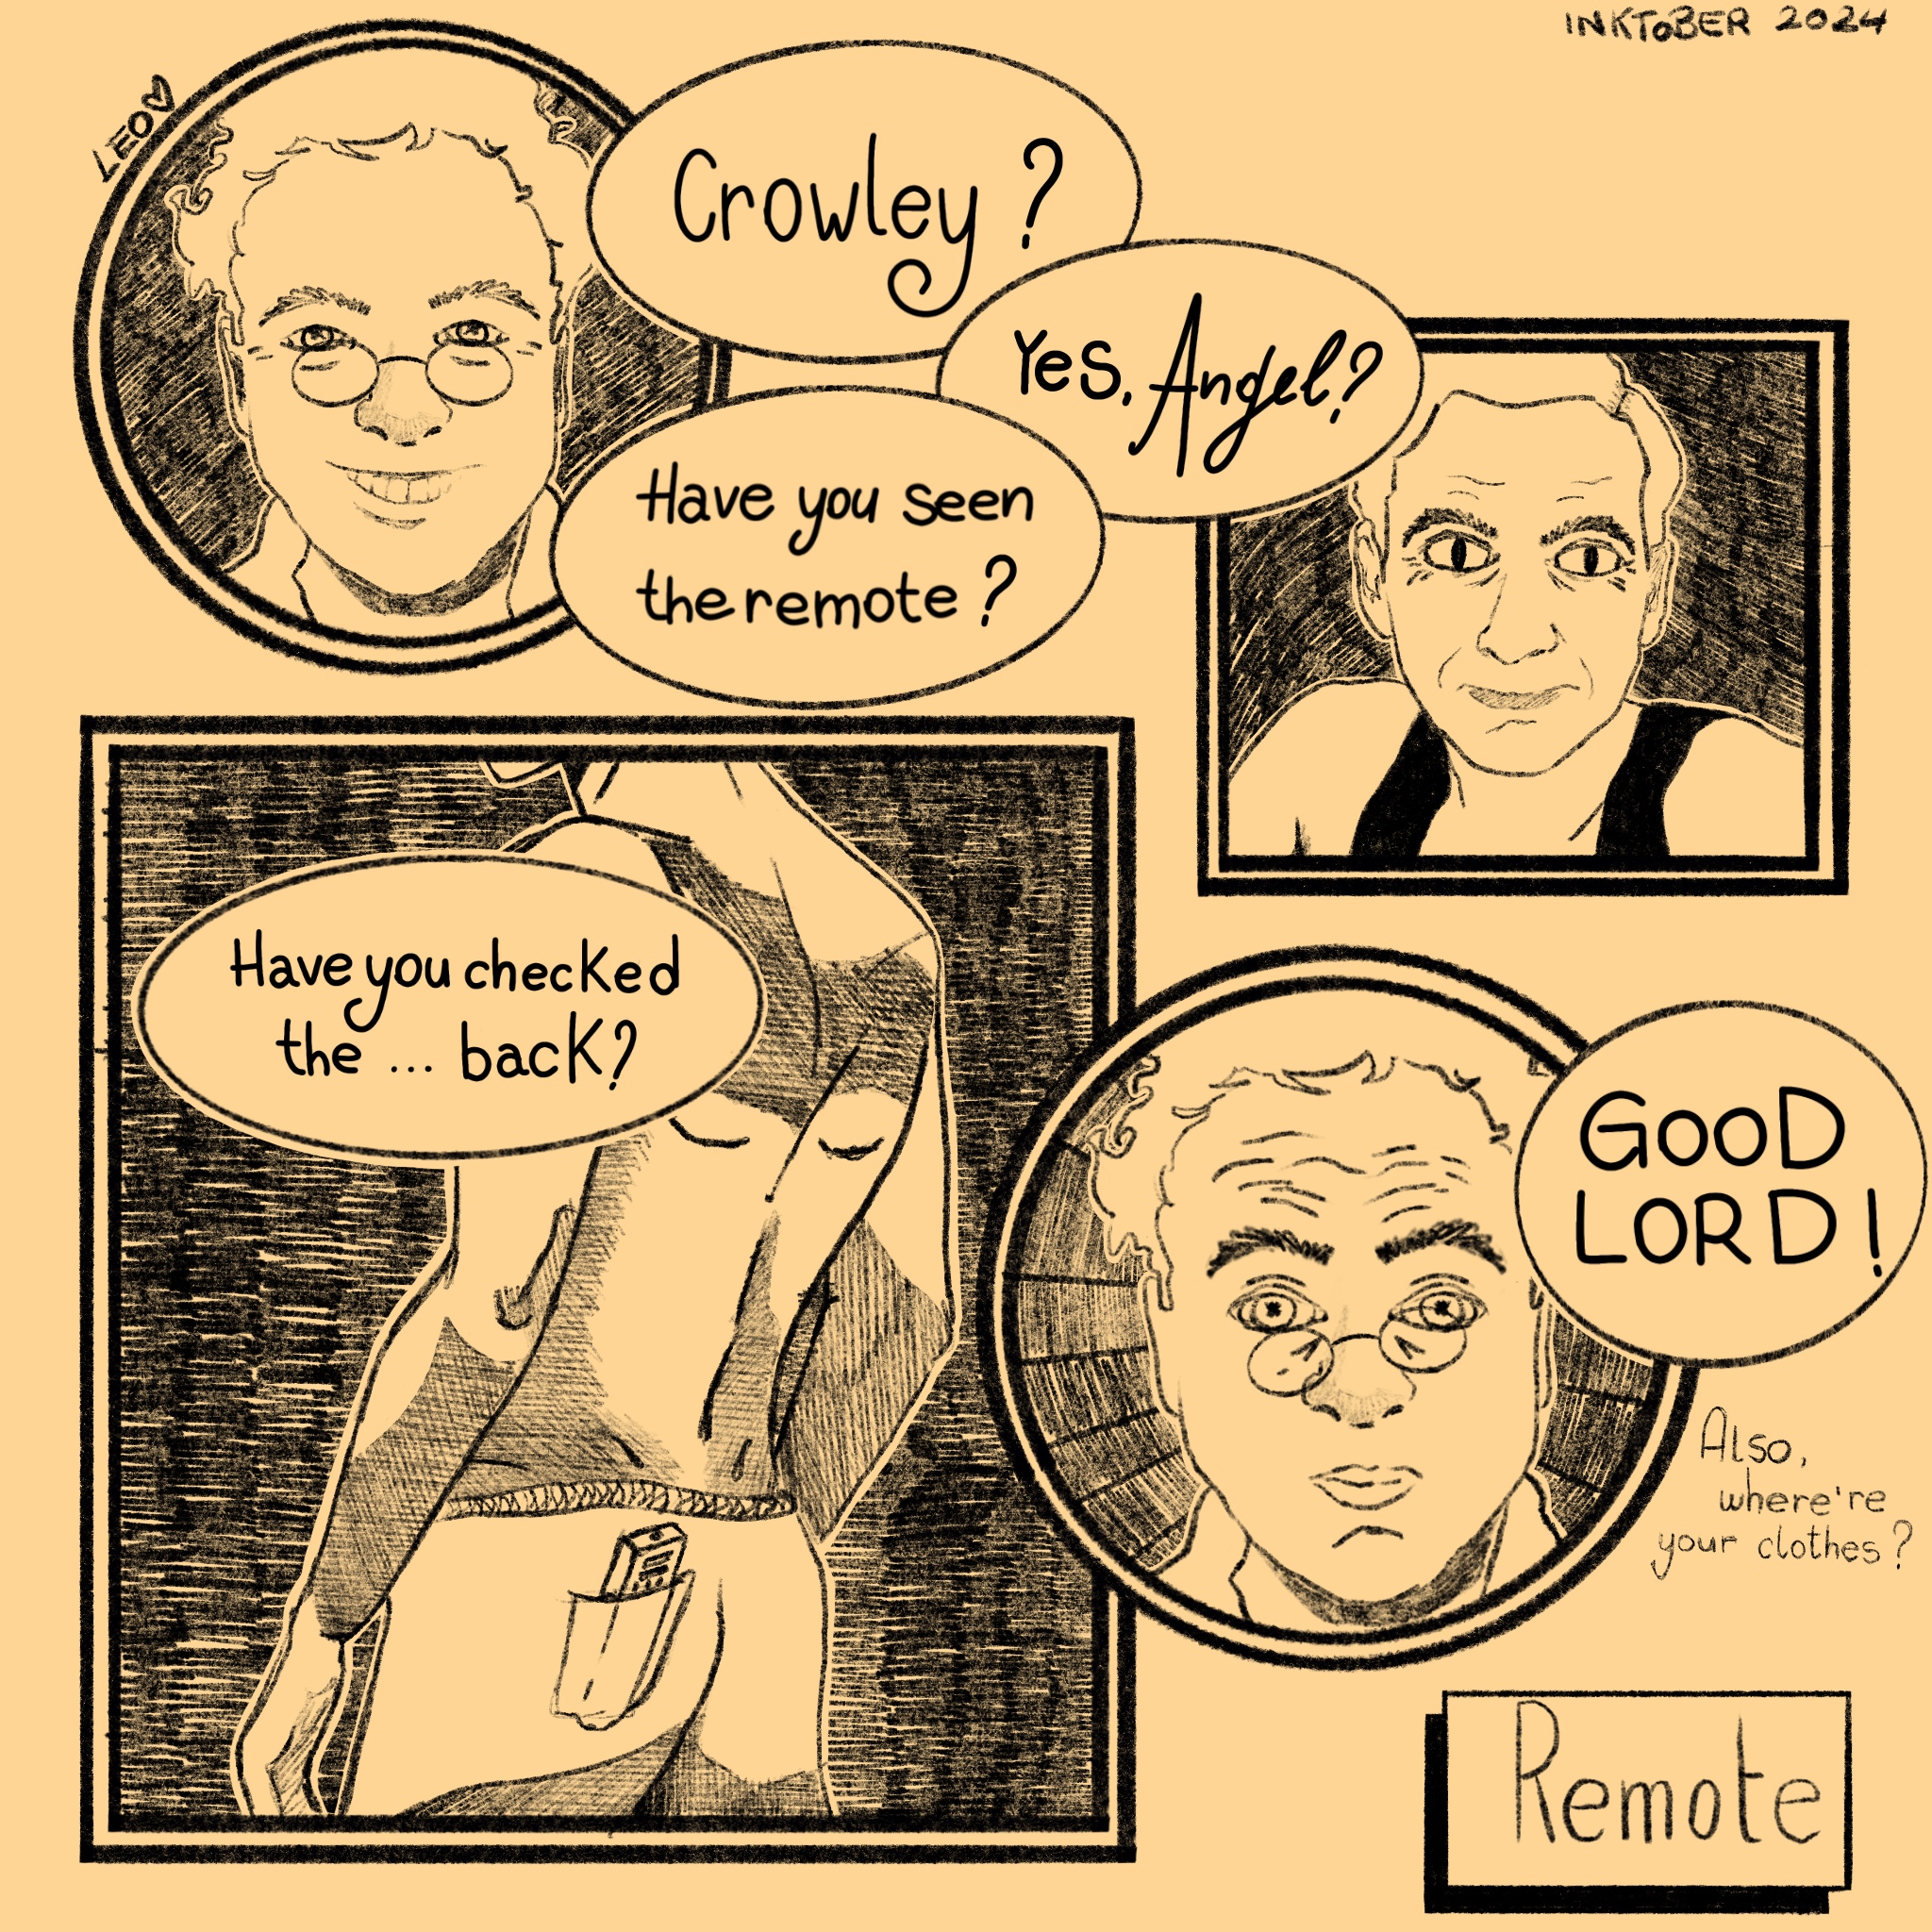 INKTOBER 2024
LEO
Crowley?
Yes, Angel?
Have you seen
the remote?
Have you checked
the ... back?
GOOD
LORD!
Also,
where're
your clothes?
Remote